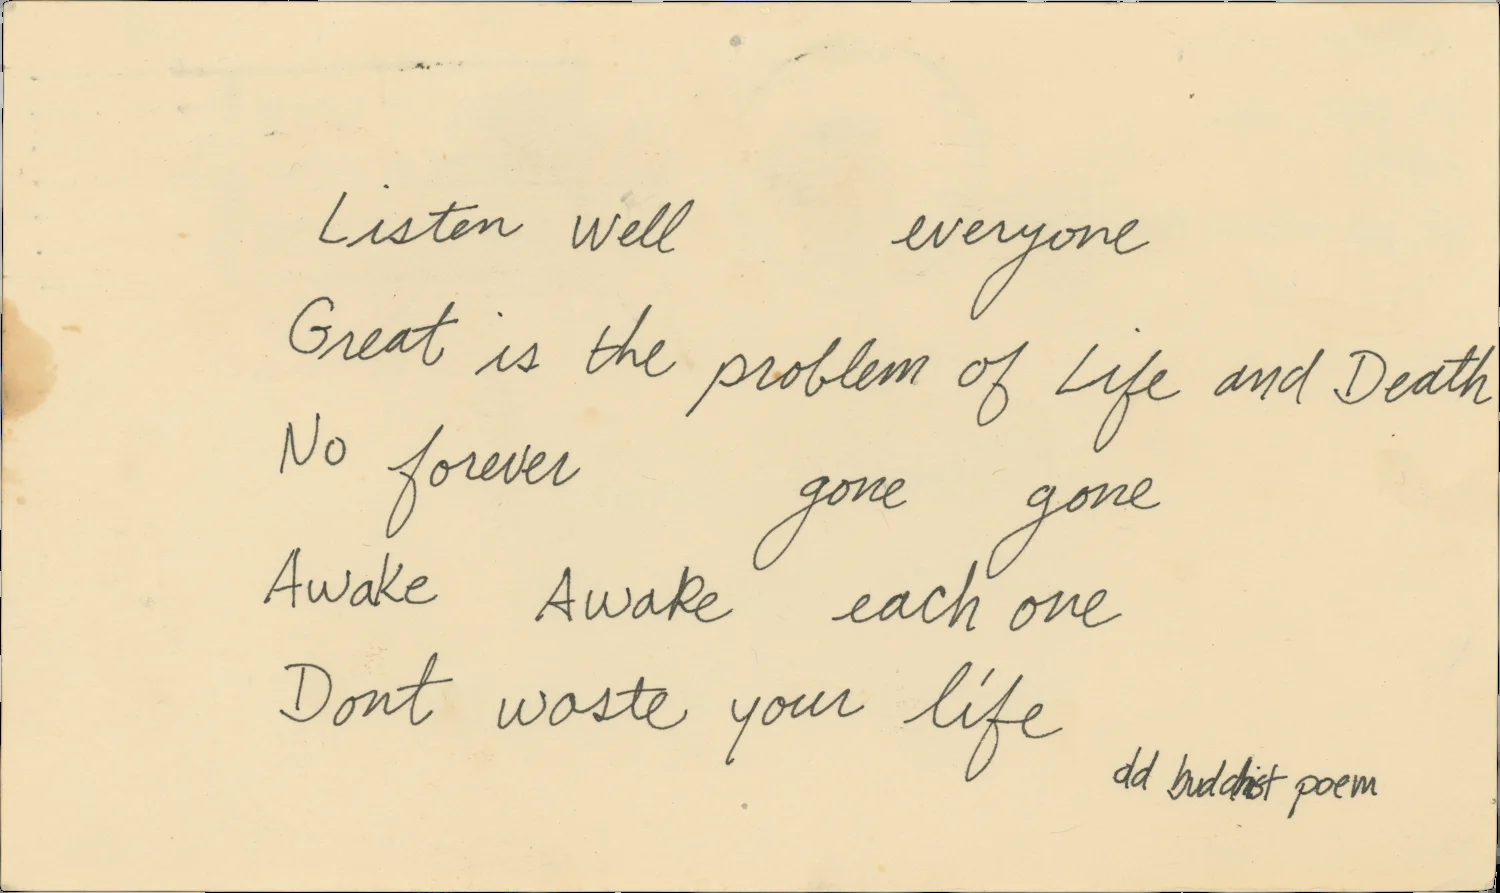 Listen well everyone
Great is the problem of Life and Death
No forever gone gone
Awake Awake each one
Dont waste your life
dd buddhist poem